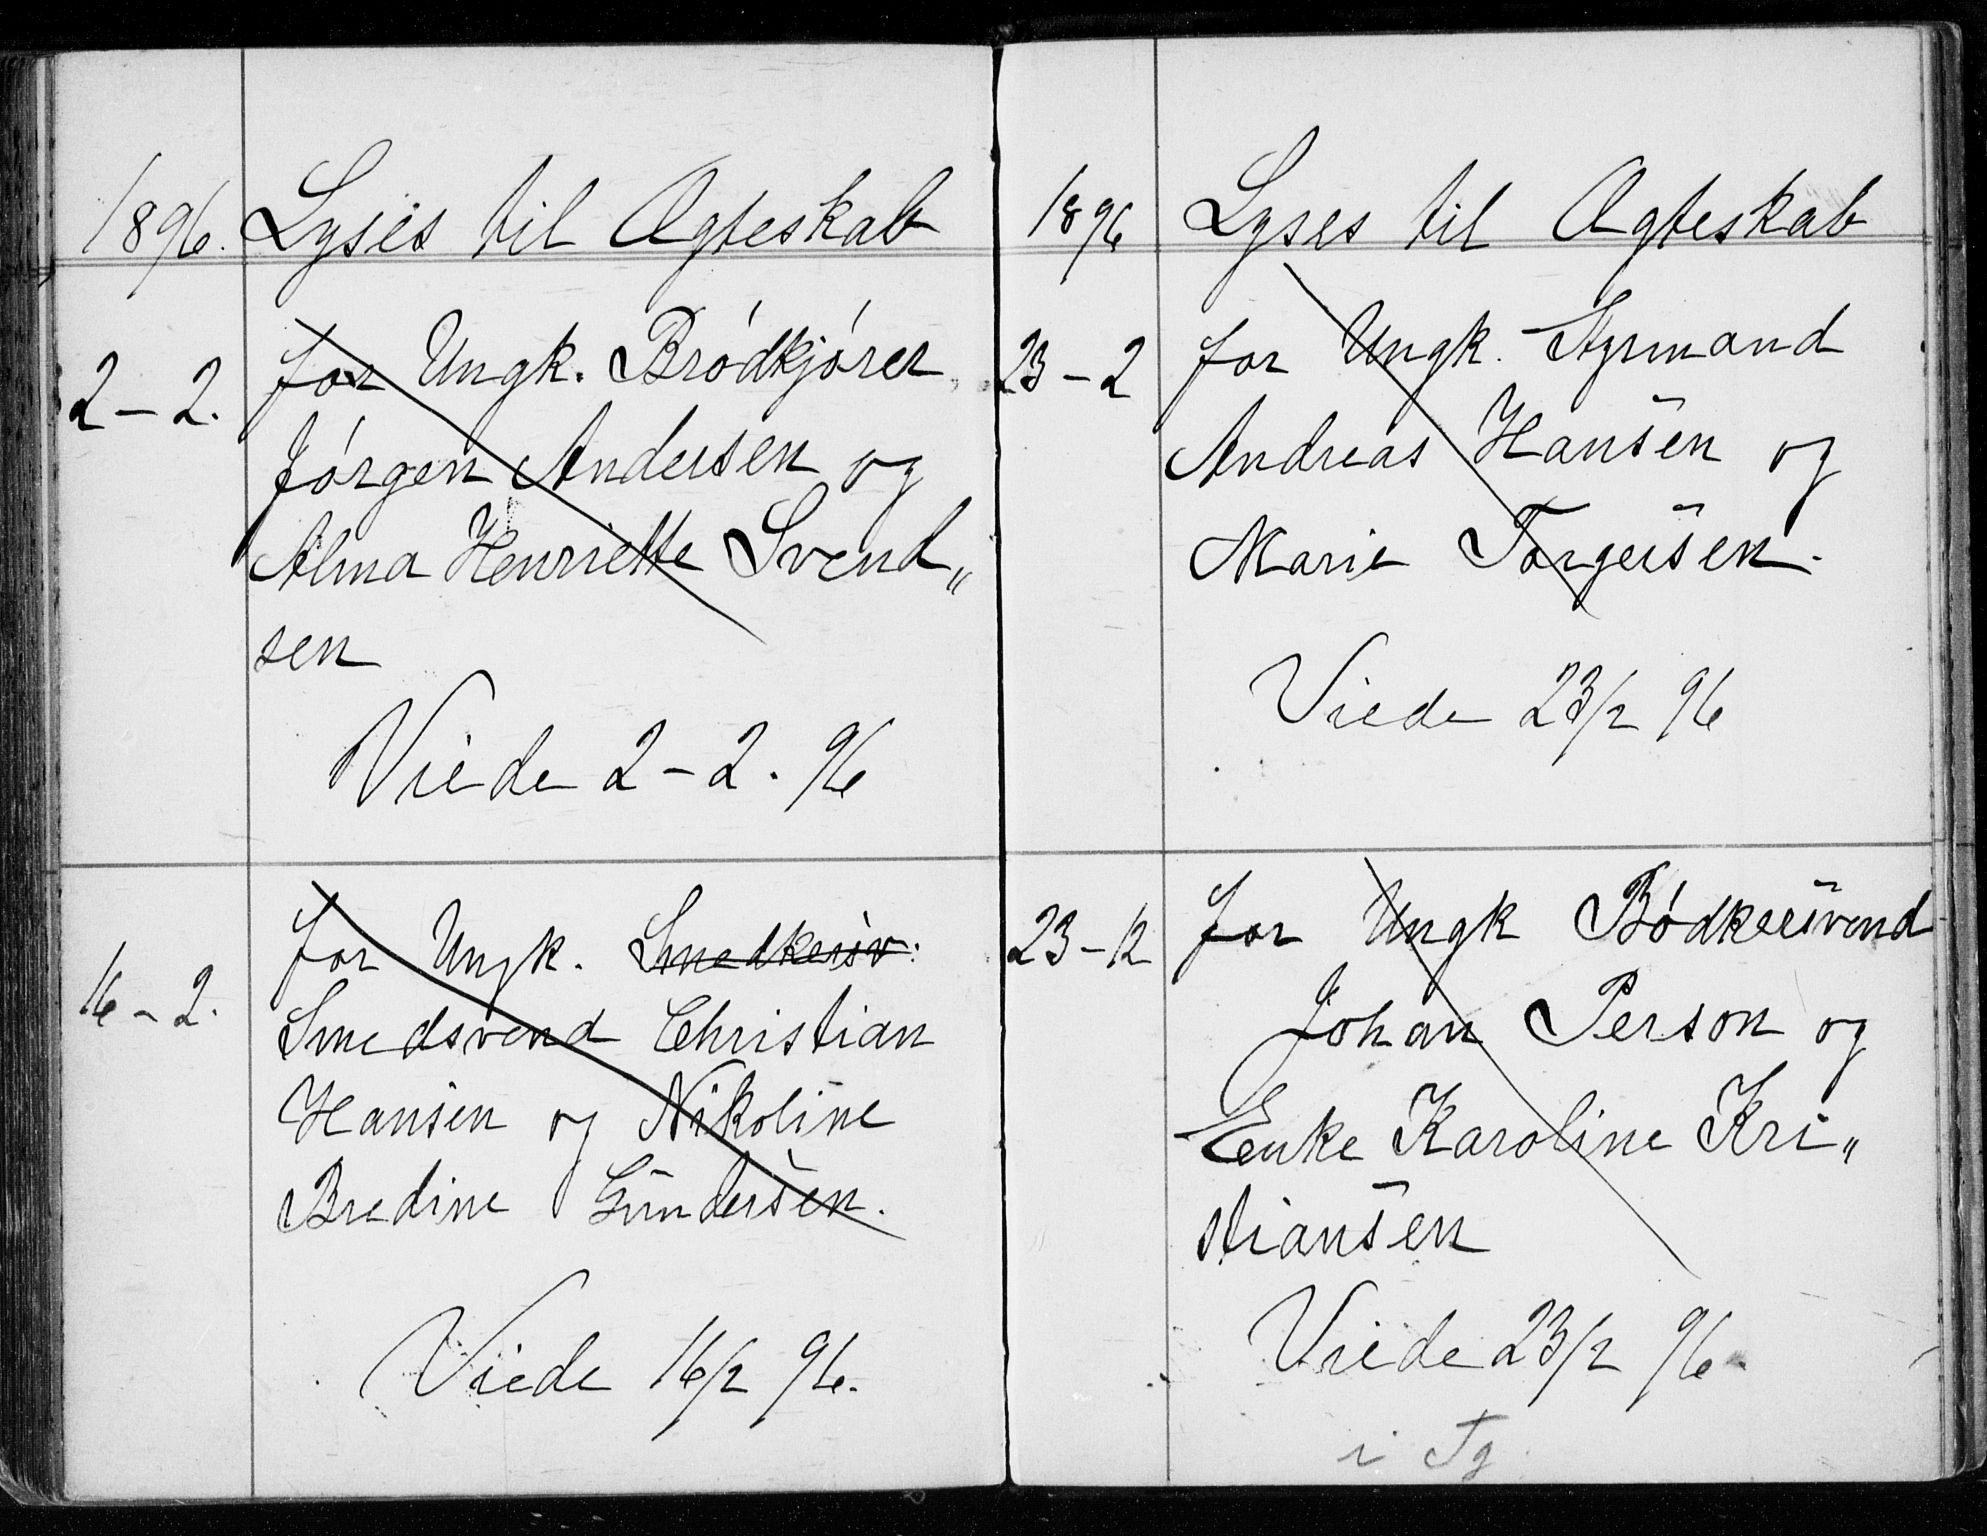 1896. Lyses til Ægteskab
2 – 2. for Ungk. Brødkjører
Jørgen Andersen og
Alma Henriette Svend„
sen
Viede 2 – 2. 96
16 – 2. for Ungk. Snedkersv.
Smedsvend Christian
Hansen og Nikoline
Bredine Gundersen.
Viede 16/2 96.
1896 Lyses til Ægteskab
23 – 2 for Ungk. Styrmand
Andreas Hansen og
Marie Torgersen.
Viede 23/2 96
23 – 12 for Ungk Bødkersvend
Johan Person og
Enke Karoline Kri„
stiansen
Viede 23/2 96.
i Tg